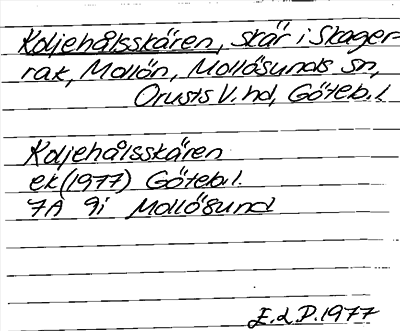 Koljehålsskären, skär i Skager-
rak, Mollön, Mollösunds sn,
Orusts V. hd, Göteb. l.
Koljehålsskären
ek (1977) Göteb. l.
7A 9i Mollösund
E. L. P. 1977